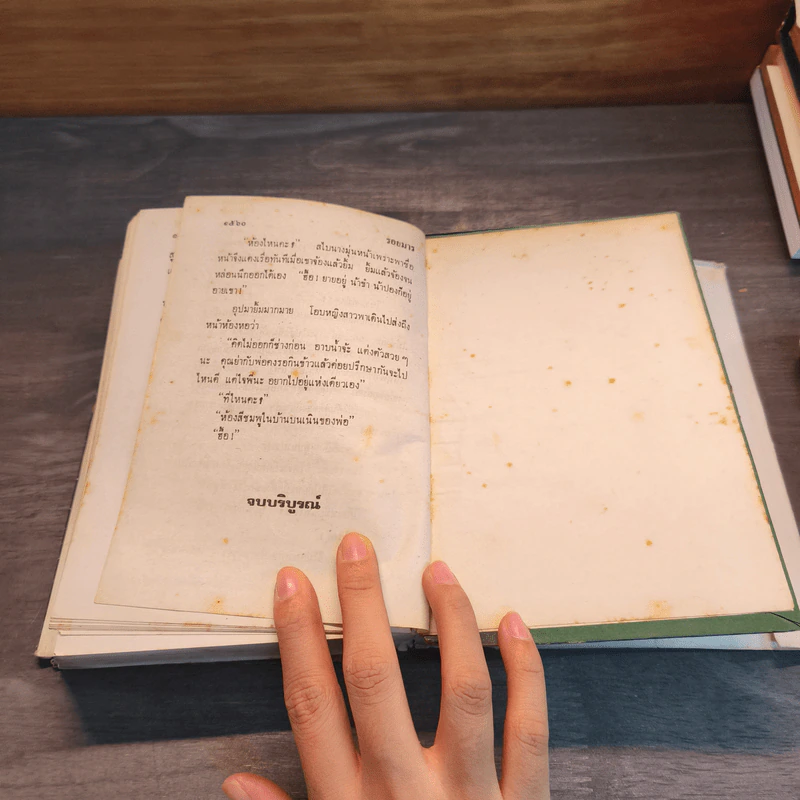 ๑๕๖๐
รอยมาร
“ห้องไหนคะ?” สไบนางมุ่นหน้าเพราะพาซื่อ
หน้าจึงแดงเรื่อทันทีเมื่อเขาจ้องแล้วยิ้ม ยิ้มแล้วจ้องจน
หล่อนนึกออกได้เอง “ฮื้อ! ยายอยู่ น้าขำ น้าปองก็อยู่
อายเขา!
อุปมายิ้มมากมาย โอบหญิงสาวพาเดินไปส่งถึง
หน้าห้องหอว่า
“คิดไม่ออกก็ช่างก่อน อาบน้ำจ้ะ แต่งตัวสวย ๆ
นะ คุณย่ากับพ่อคงรอกินข้าวแล้วค่อยปรึกษากันจะไป
ไหนดี แต่ใจพี่นะ อยากไปอยู่แห่งเดียวเอง”
“ที่ไหนคะ?”
“ห้องสีชมพูในบ้านบนเนินของพ่อ”
“ฮื้อ!”
จบบริบูรณ์